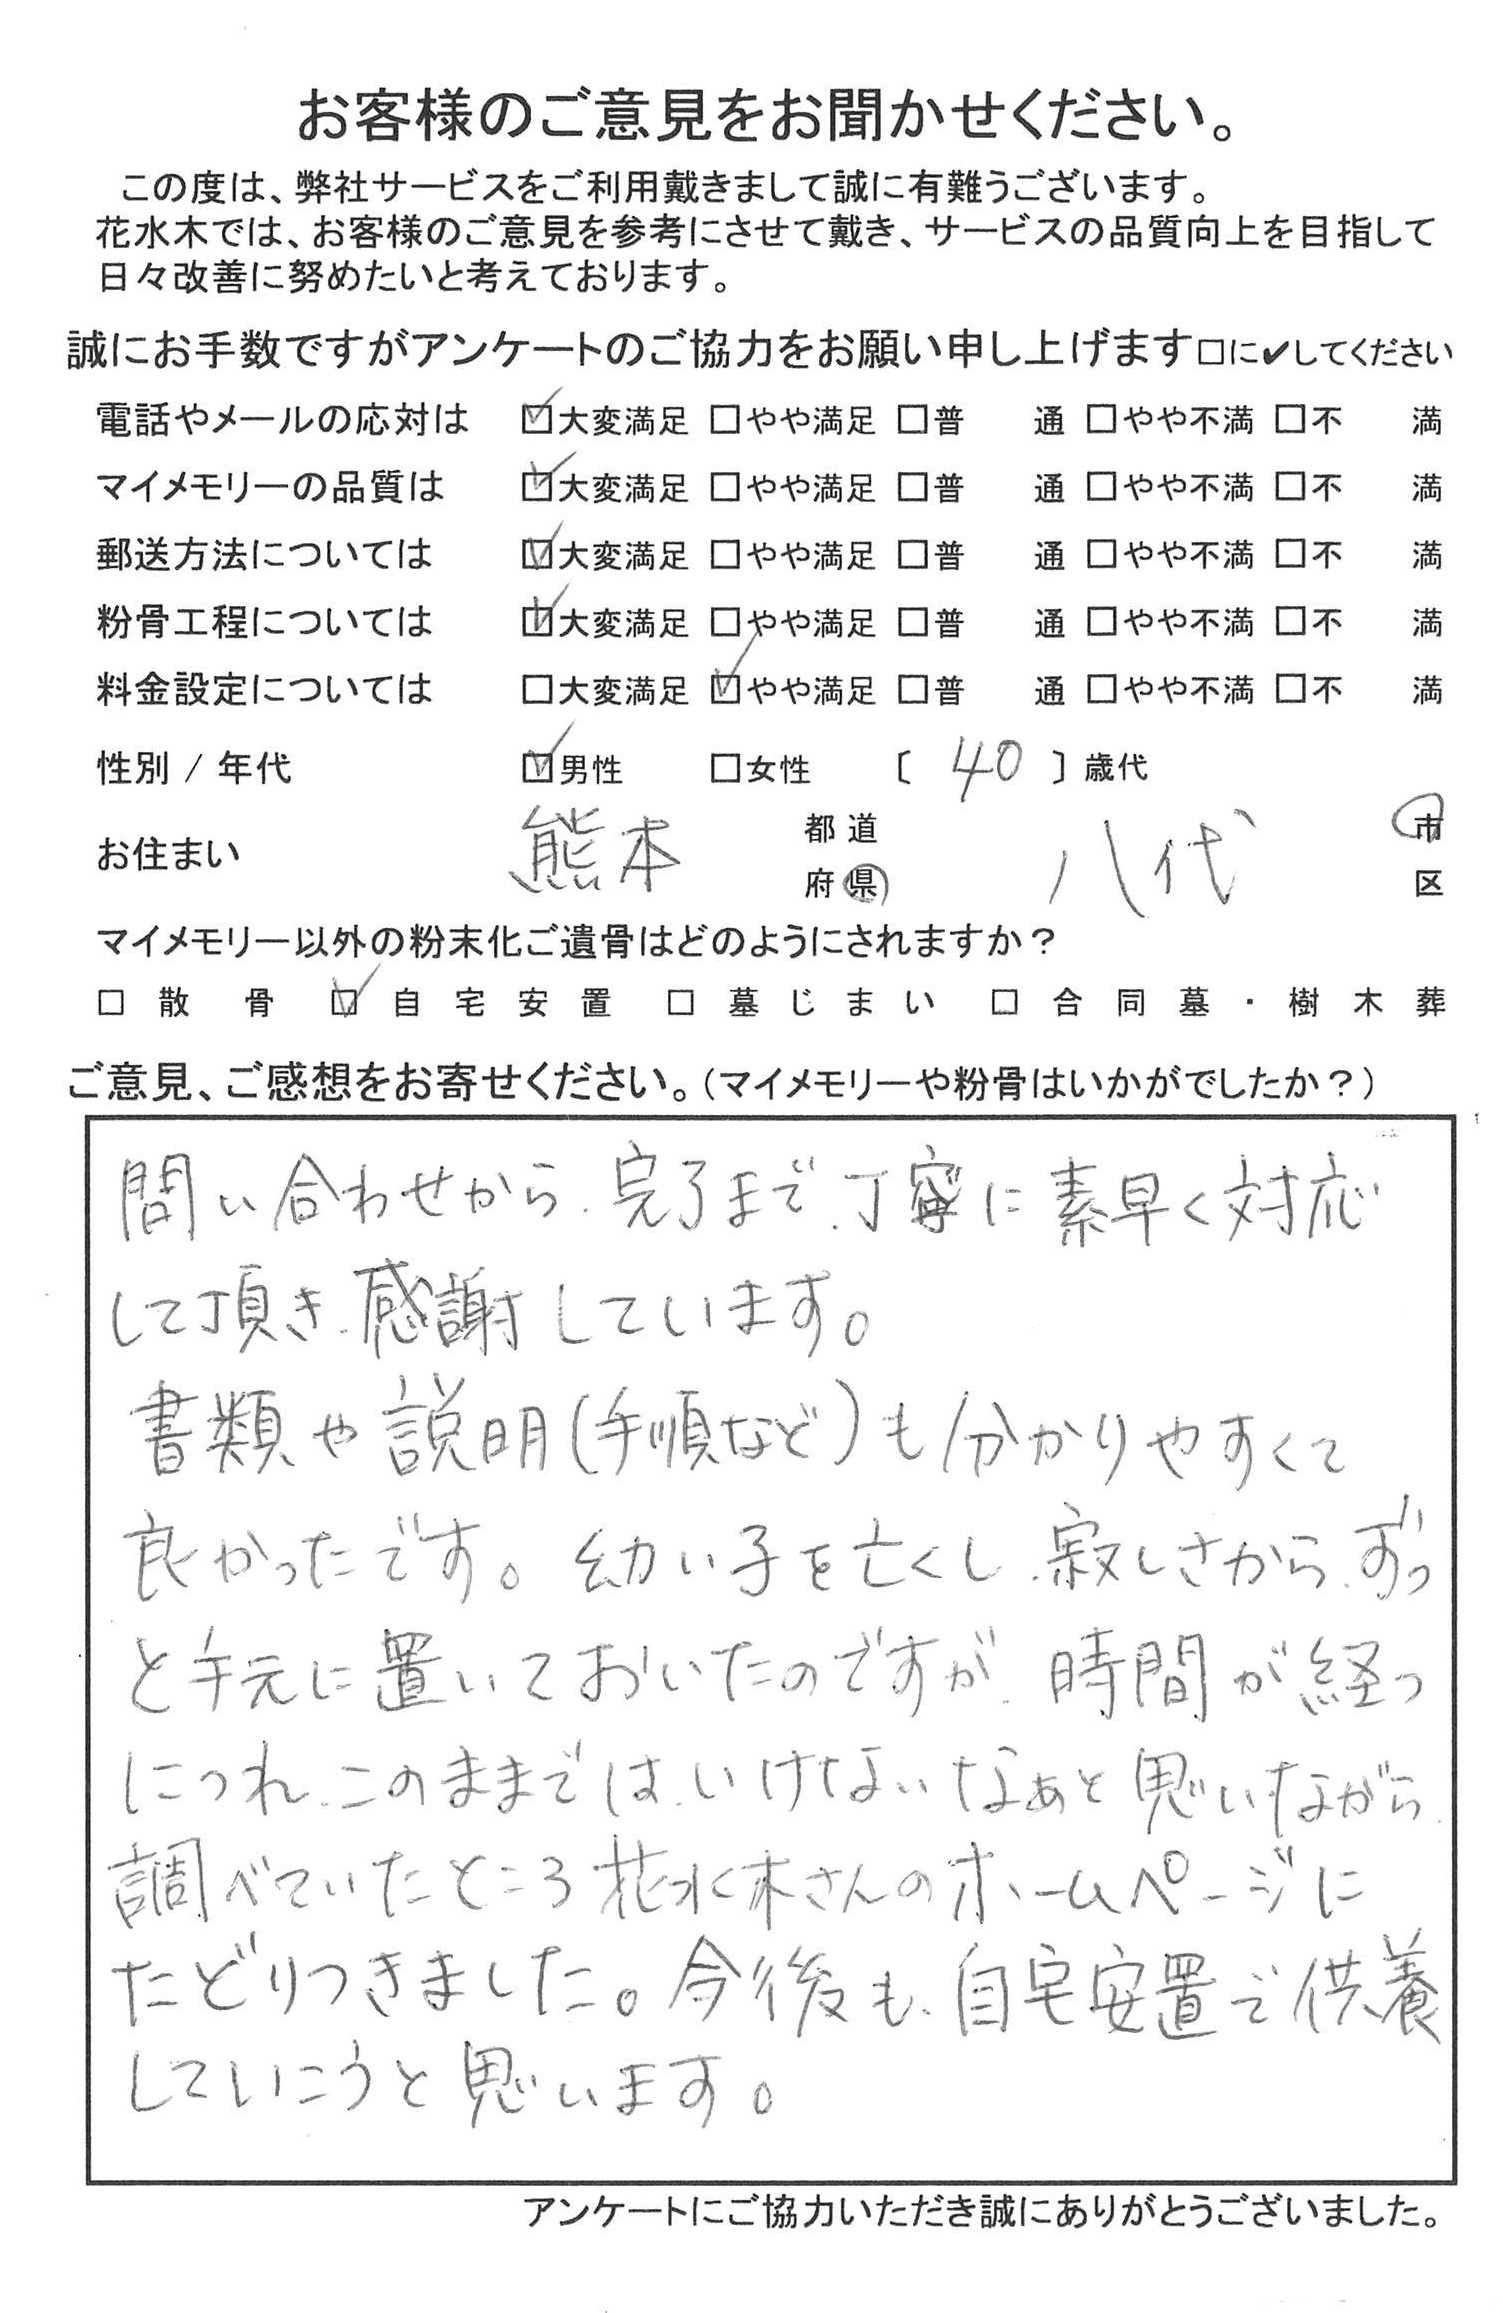 お客様のご意見をお聞かせください。
この度は、弊社サービスをご利用戴きまして誠に有難うございます。
花水木では、お客様のご意見を参考にさせて戴き、サービスの品質向上を目指して
日々改善に努めたいと考えております。
誠にお手数ですがアンケートのご協力をお願い申し上げます□に✔してください
電話やメールの応対は ☑大変満足 □やや満足 □普 通 □やや不満 □不 満
マイメモリーの品質は ☑大変満足 □やや満足 □普 通 □やや不満 □不 満
郵送方法については ☑大変満足 □やや満足 □普 通 □やや不満 □不 満
粉骨工程については ☑大変満足 □やや満足 □普 通 □やや不満 □不 満
料金設定については □大変満足 ☑やや満足 □普 通 □やや不満 □不 満
性別 / 年代 ☑男性 □女性 〔 40 〕歳代
お住まい 熊本 都道府県 八代 市区
マイメモリー以外の粉末化ご遺骨はどのようにされますか？
□ 散骨 ☑ 自宅安置 □ 墓じまい □ 合同墓・樹木葬
ご意見、ご感想をお寄せください。（マイメモリーや粉骨はいかがでしたか？）
問い合わせから、完了まで、丁寧に素早く対応
して頂き、感謝しています。
書類や説明(手順など)も分かりやすくて
良かったです。幼い子を亡くし、寂しさから、ずっ
と手元に置いておいたのですが、時間が経つ
につれ、このままでは、いけないなぁと思いながら、
調べていたところ花水木さんのホームページに
たどりつきました。今後も、自宅安置で供養
していこうと思います。
アンケートにご協力いただき誠にありがとうございました。